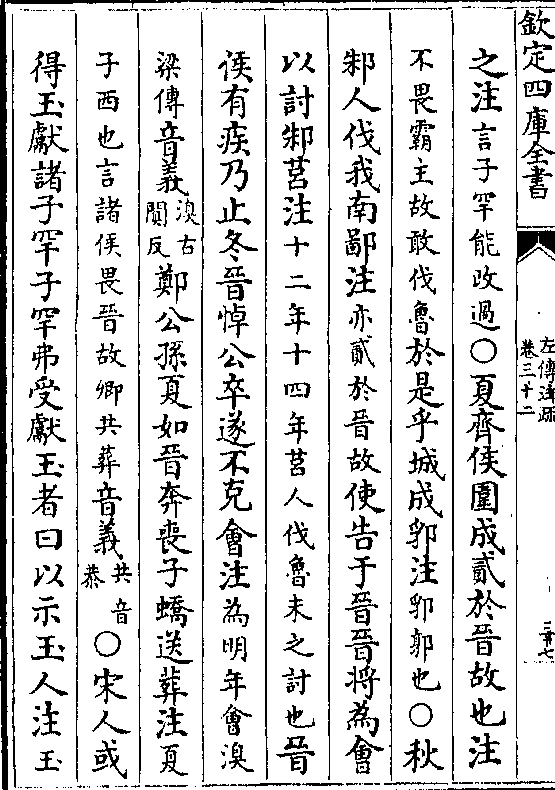 欽定四庫全書
左傳注疏
卷三十二
三十七
之注言子罕能改過○夏齊侯圍成貳於晉故也注
不畏霸主故敢伐魯於是乎城成郛注郛郭也○秋
邾人伐我南鄙注亦貳於晉故使告于晉晉將為會
以討邾莒注十二年十四年莒人伐魯未之討也晉
侯有疾乃止冬晉悼公卒遂不克會注為明年會溴
梁傳音義溴古闃反鄭公孫夏如晉奔喪子蟜送葬注夏
子西也言諸侯畏晉故卿共葬音義共音恭○宋人或
得玉獻諸子罕子罕弗受獻玉者曰以示玉人注玉